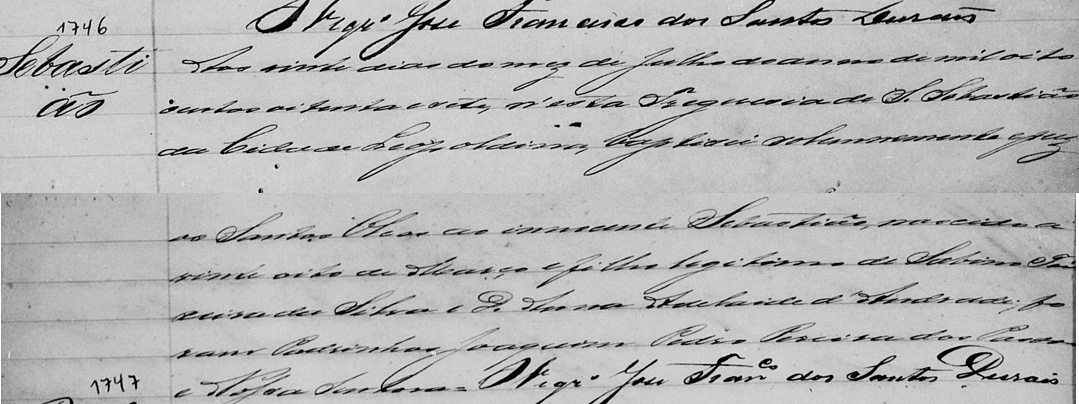 O Vigrº José Francisco dos Santos Durães
1746
Sebasti
ão
Aos vinte dias do mez de Julho do anno de mil oito
centos oitenta e sete, n'esta Freguezia de S. Sebastião
da Cidade de Leopoldina, baptizei solemnemente e puz
os Santos Oleos ao innocente Sebastião, nascido a
vinte oito de Março e filho legitimo de Sabino
da Silva e D. Anna Adelaide d'Andrade; fo
ram Padrinhos Joaquim Pedro Pereira dos
e Nossa Senhora = O Vigrº José Francº dos Santos Durães
1747